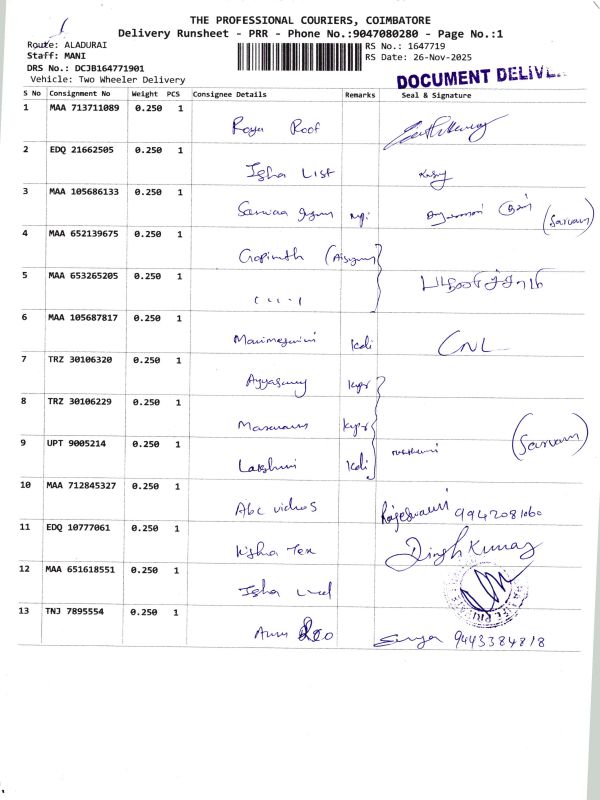 THE PROFESSIONAL COURIERS, COIMBATORE
Delivery Runsheet - PRR - Phone No.:9047080280 - Page No.:1
Route: ALADURAI
RS No.: 1647719
Staff: MANI
RS Date: 26-Nov-2025
DRS No.: DCJB164771901
DOCUMENT DELIVE
Vehicle: Two Wheeler Delivery
S No Consignment No Weight PCS Consignee Details Remarks Seal & Signature
1 MAA 713711089 0.250 1 Roof
2 EDQ 21662505 0.250 1 Isha List
3 MAA 105686133 0.250 1 (Sarvam)
4 MAA 652139675 0.250 1 Gopinath
5 MAA 653265205 0.250 1
6 MAA 105687817 0.250 1 kdi CNL
7 TRZ 30106320 0.250 1 Ayyasamy
8 TRZ 30106229 0.250 1
9 UPT 9005214 0.250 1 Lakshmi kdi (Sarvam)
10 MAA 712845327 0.250 1 Abc videos Rajeswari 9942081060
11 EDQ 10777061 0.250 1 Tex Dinesh Kumar
12 MAA 651618551 0.250 1 Isha
13 TNJ 7895554 0.250 1 Surya 9443384818